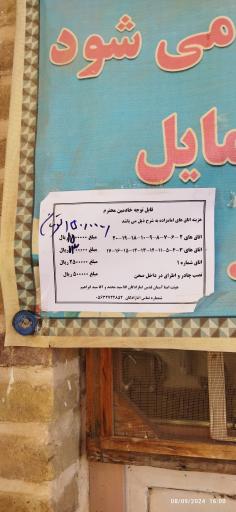 می شود
مایل
قابل توجه خادمین محترم
هزینه اتاق های امامزاده به شرح ذیل می باشد
اتاق های ۲-۶-۷-۸-۹-۱۰-۱۸-۱۹-۲۰ مبلغ ریال
اتاق های ۳-۴-۵-۱۱-۱۲-۱۳-۱۴-۱۵-۱۶ مبلغ ریال
اتاق شماره ۱ مبلغ ۲۵۰۰۰۰۰ ریال
نصب چادر و اطراق در داخل صحن مبلغ ۵۰۰۰۰۰ ریال
هیئت امنا آستان قدس امامزادگان آقا سید محمد و آقا سید ابراهیم
شماره تماس امامزادگان
08/09/2024 16:00